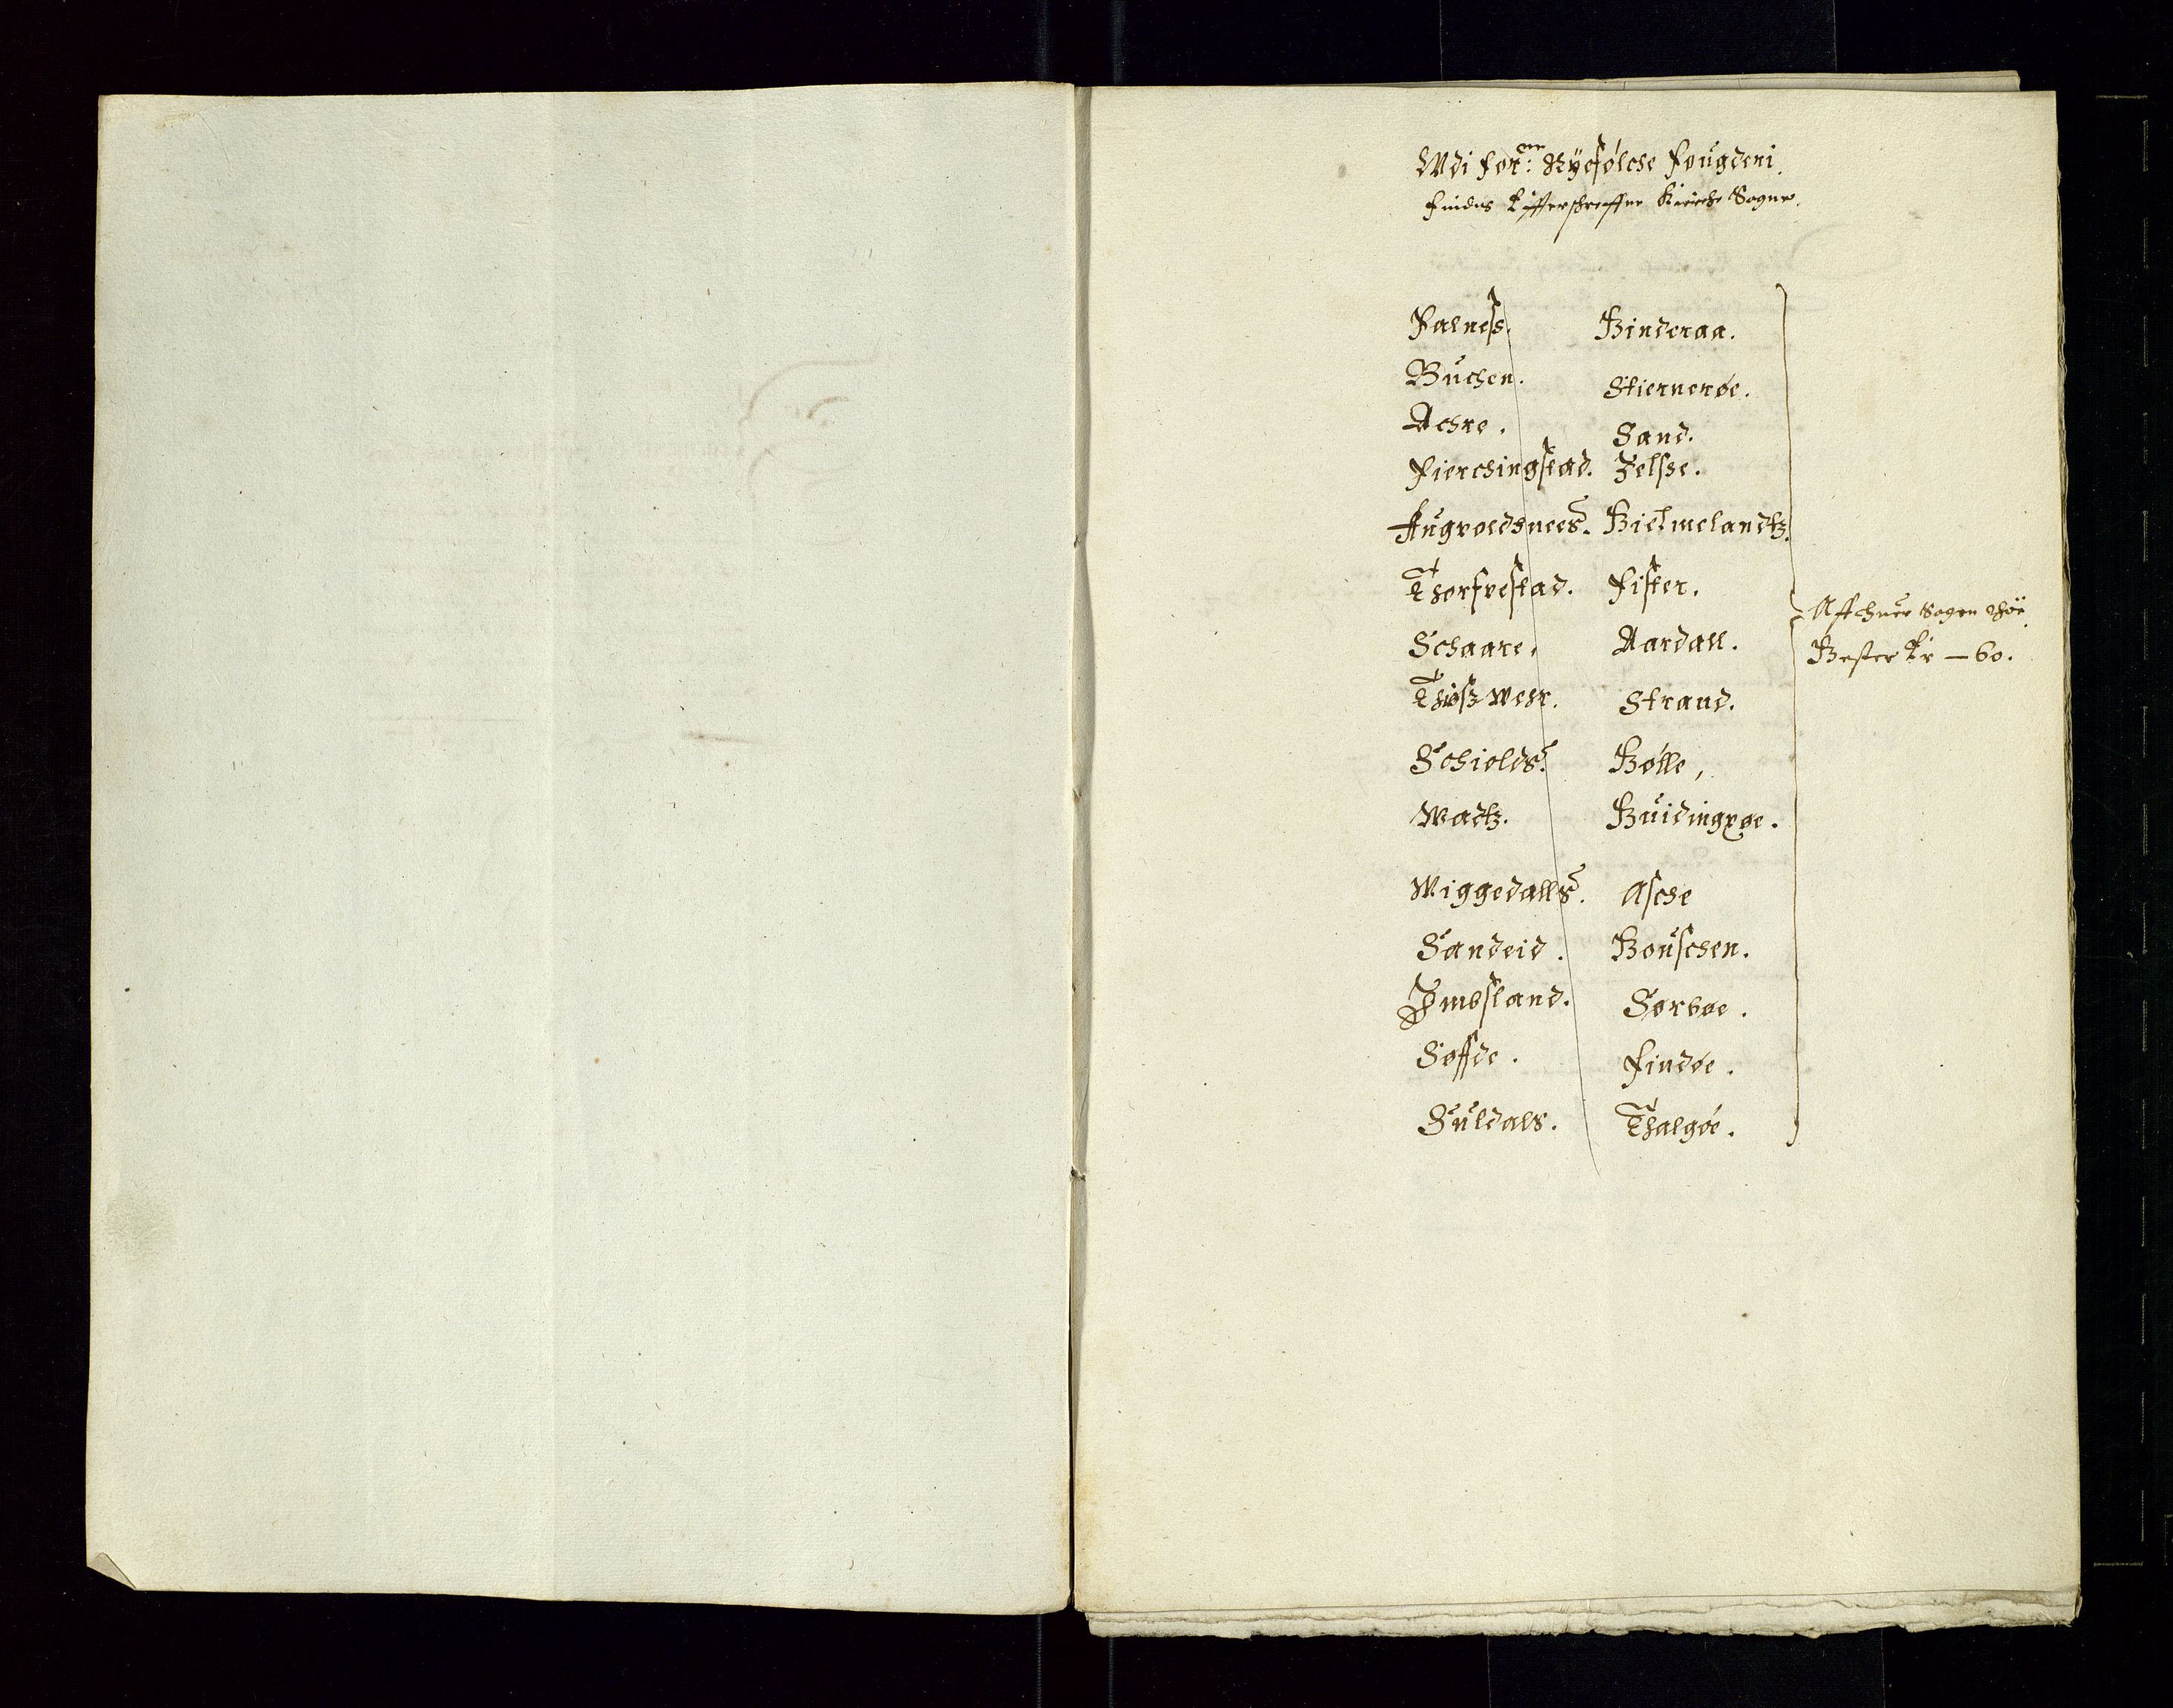 Wdi for:nn Ryefølche fougderi.
findis Effterschreffne Kircke Sogner.
Falness. Hinderaa.
Buchen. Stiernerøe.
Achre. Sand.
Fierchingstad. Jelsse.
Augvoldsnees. Hielmelandtz.
Thorfvestad. Fister.
Schaare. Aardall.
Thiøsz Wehr. Strand.
Schiolds. Hølle,
Watz. Huidingxøe.
Wiggedalls. Asche
Sandeid. Houschen.
Imbsland. Sørbøe.
Søffde. Findøe.
Suldals. Thalgøe.
Aff huer Sogen thou
Hester Er — 60.